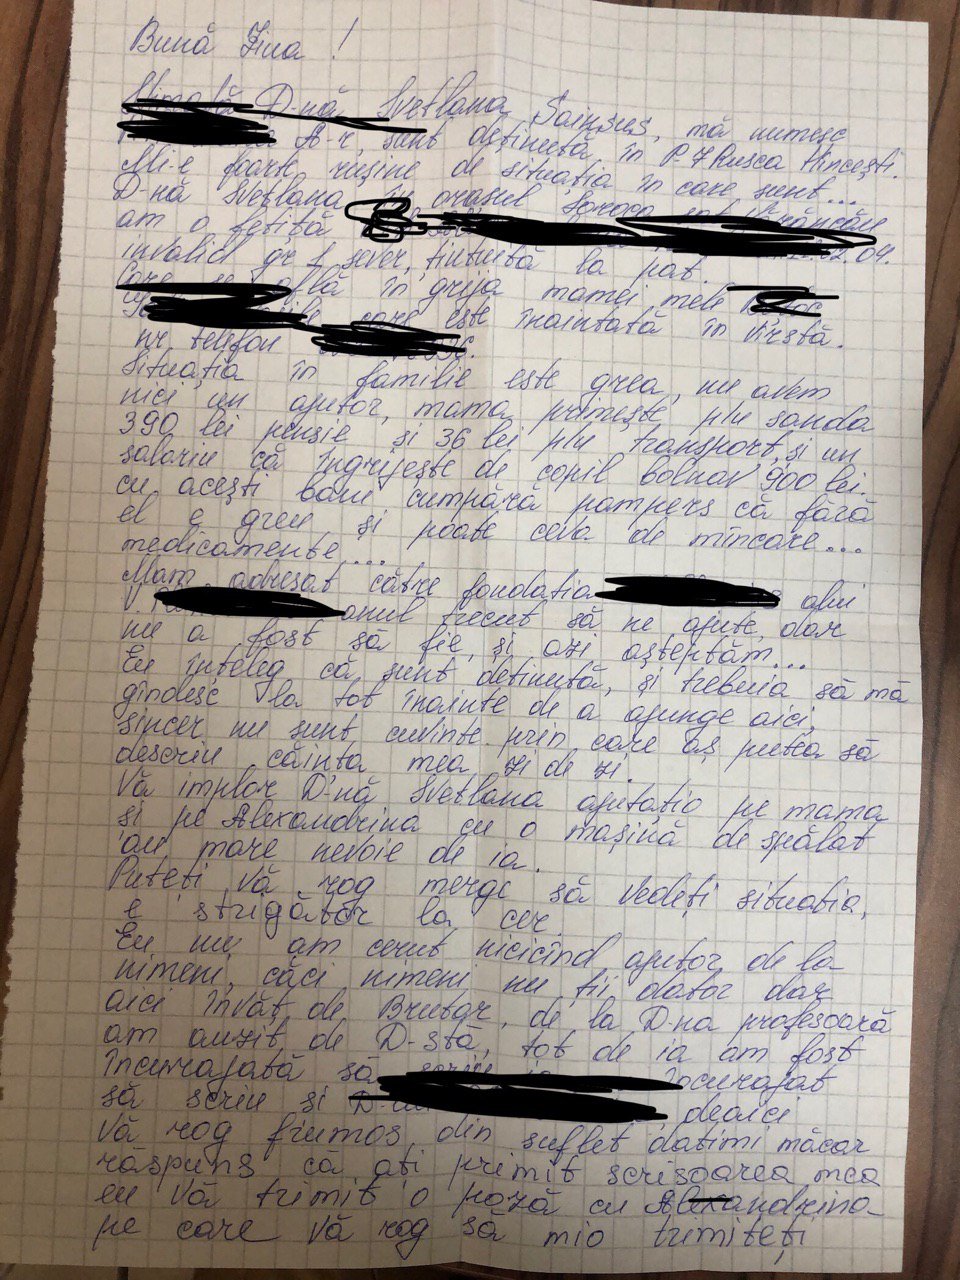 Bună Ziua !
Stimată D-nă Svetlana
A-r, sunt deținută în P-7 Rusca Hîncești.
Mi-e foarte rușine de situația în care sunt...
D-nă Svetlana din orașul Soroca sat
am o fetiță 04.
invalid gr. 1 sever, țintuită la pat.
Care se află în grija mamei mele
care este înaintată în vîrstă.
nr. telefon
Situația în familie este grea, nu avem
nici un ajutor, mama primește p/u sonda
390 lei pensie și 36 lei p/u transport, și un
salariu că îngrijește de copil bolnav 900 lei.
cu acești bani cumpără pampers că fără
el e greu și poate ceva de mîncare...
medicamente....
Mam adresat către fondatia
anul trecut să ne ajute, dar
nu a fost să fie, și azi așteptăm...
Eu înteleg că sunt deținută, și trebuia să mă
gîndesc la tot înainte de a ajunge aici,
sincer nu sunt cuvinte prin care aș putea să
descriu căința mea zi de zi.
Vă implor D-nă Svetlana ajutațio pe mama
și pe Alexandrina cu o mașină de spălat
au mare nevoie de ia.
Puteți vă rog merge să vedeți situatia,
e strigător la cer.
Eu nu am cerut nicicînd ajutor de la
nimeni, căci nimeni nu ți dator dar
aici învăt de Brutar, de la D-na profesoară
am auzit de D-stă, tot de ia am fost
încurajată să încurajat
să scriu și deaici
Vă rog frumos din suflet datimi măcar
răspuns că ati primit scrisoarea mea
eu Vă trimit o poză cu Alexandrina
pe care Vă rog să mio trimiteți